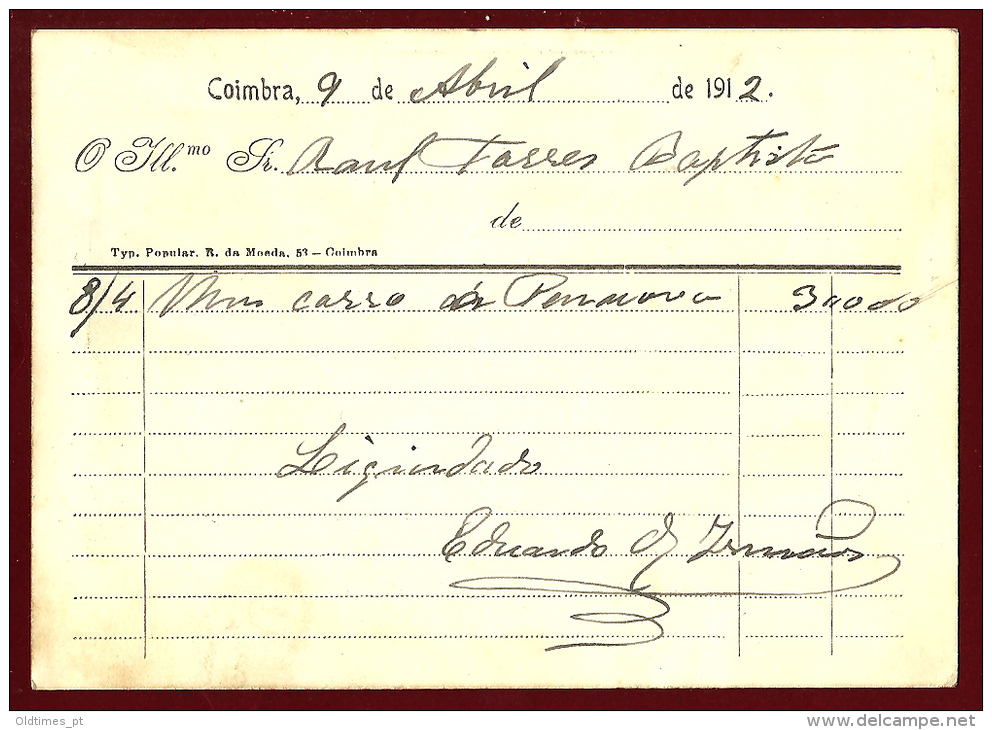 Coimbra, 9 de Abril de 1912.
O Ill.mo Sr. Raul Torres Baptista
de
Typ. Popular. R. da Moeda, 53 — Coimbra
8/4 Um carro a Pennacova
Liquidado
Eduardo & Irmãos
Oldtimes_pt
www.delcampe.net